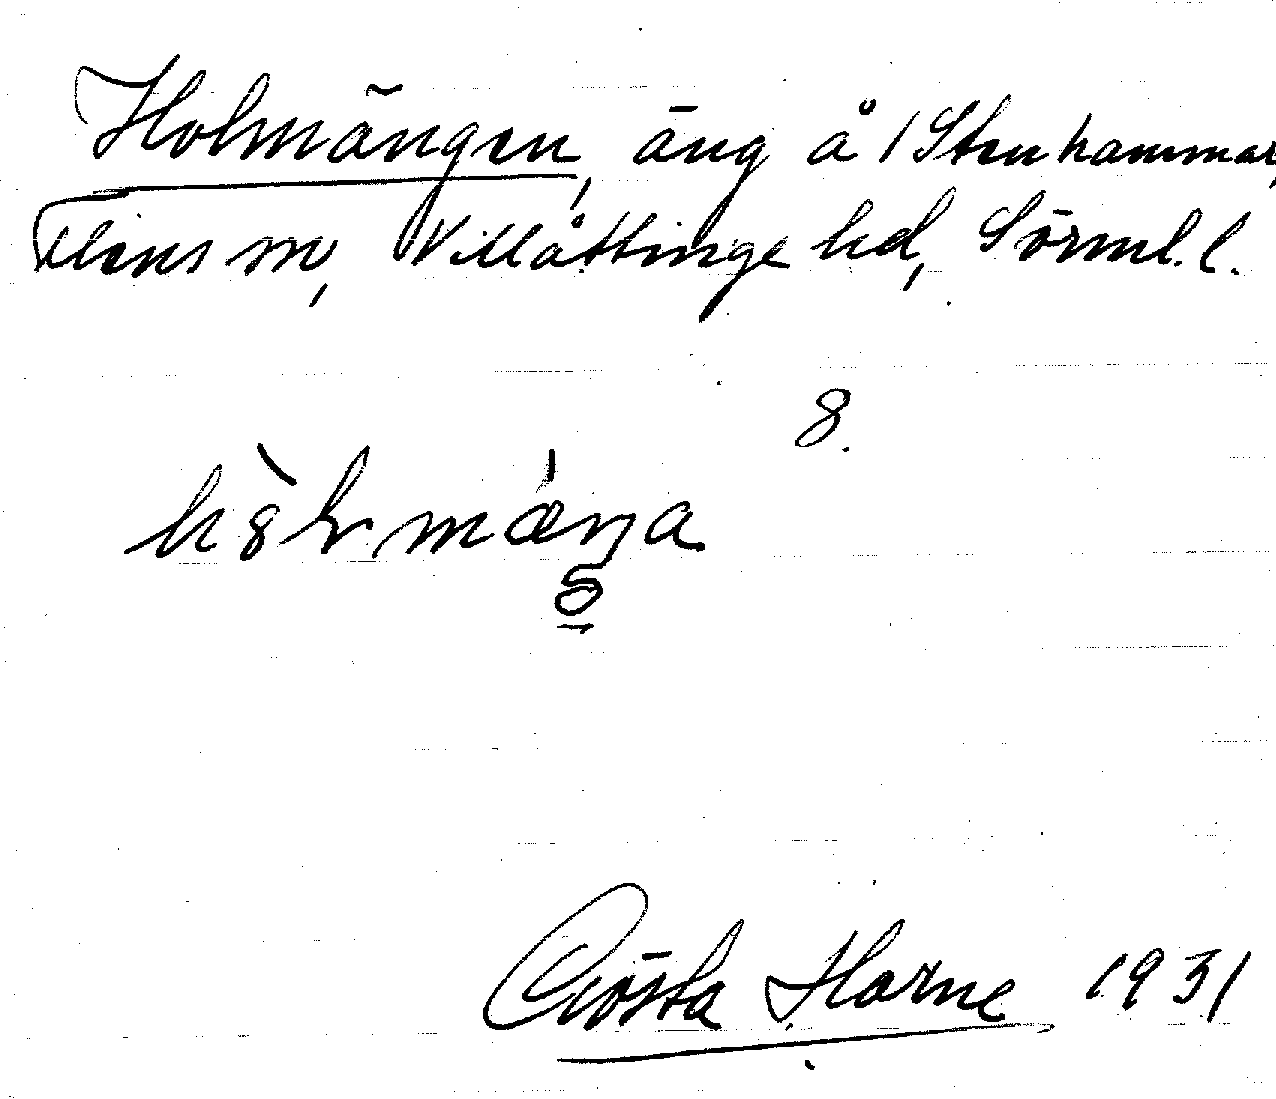 Holmängen, äng å 1 Stenhammar,
Flens sn, Villåttinge hd, Sörml. l.
8.
Gösta Horne 1931